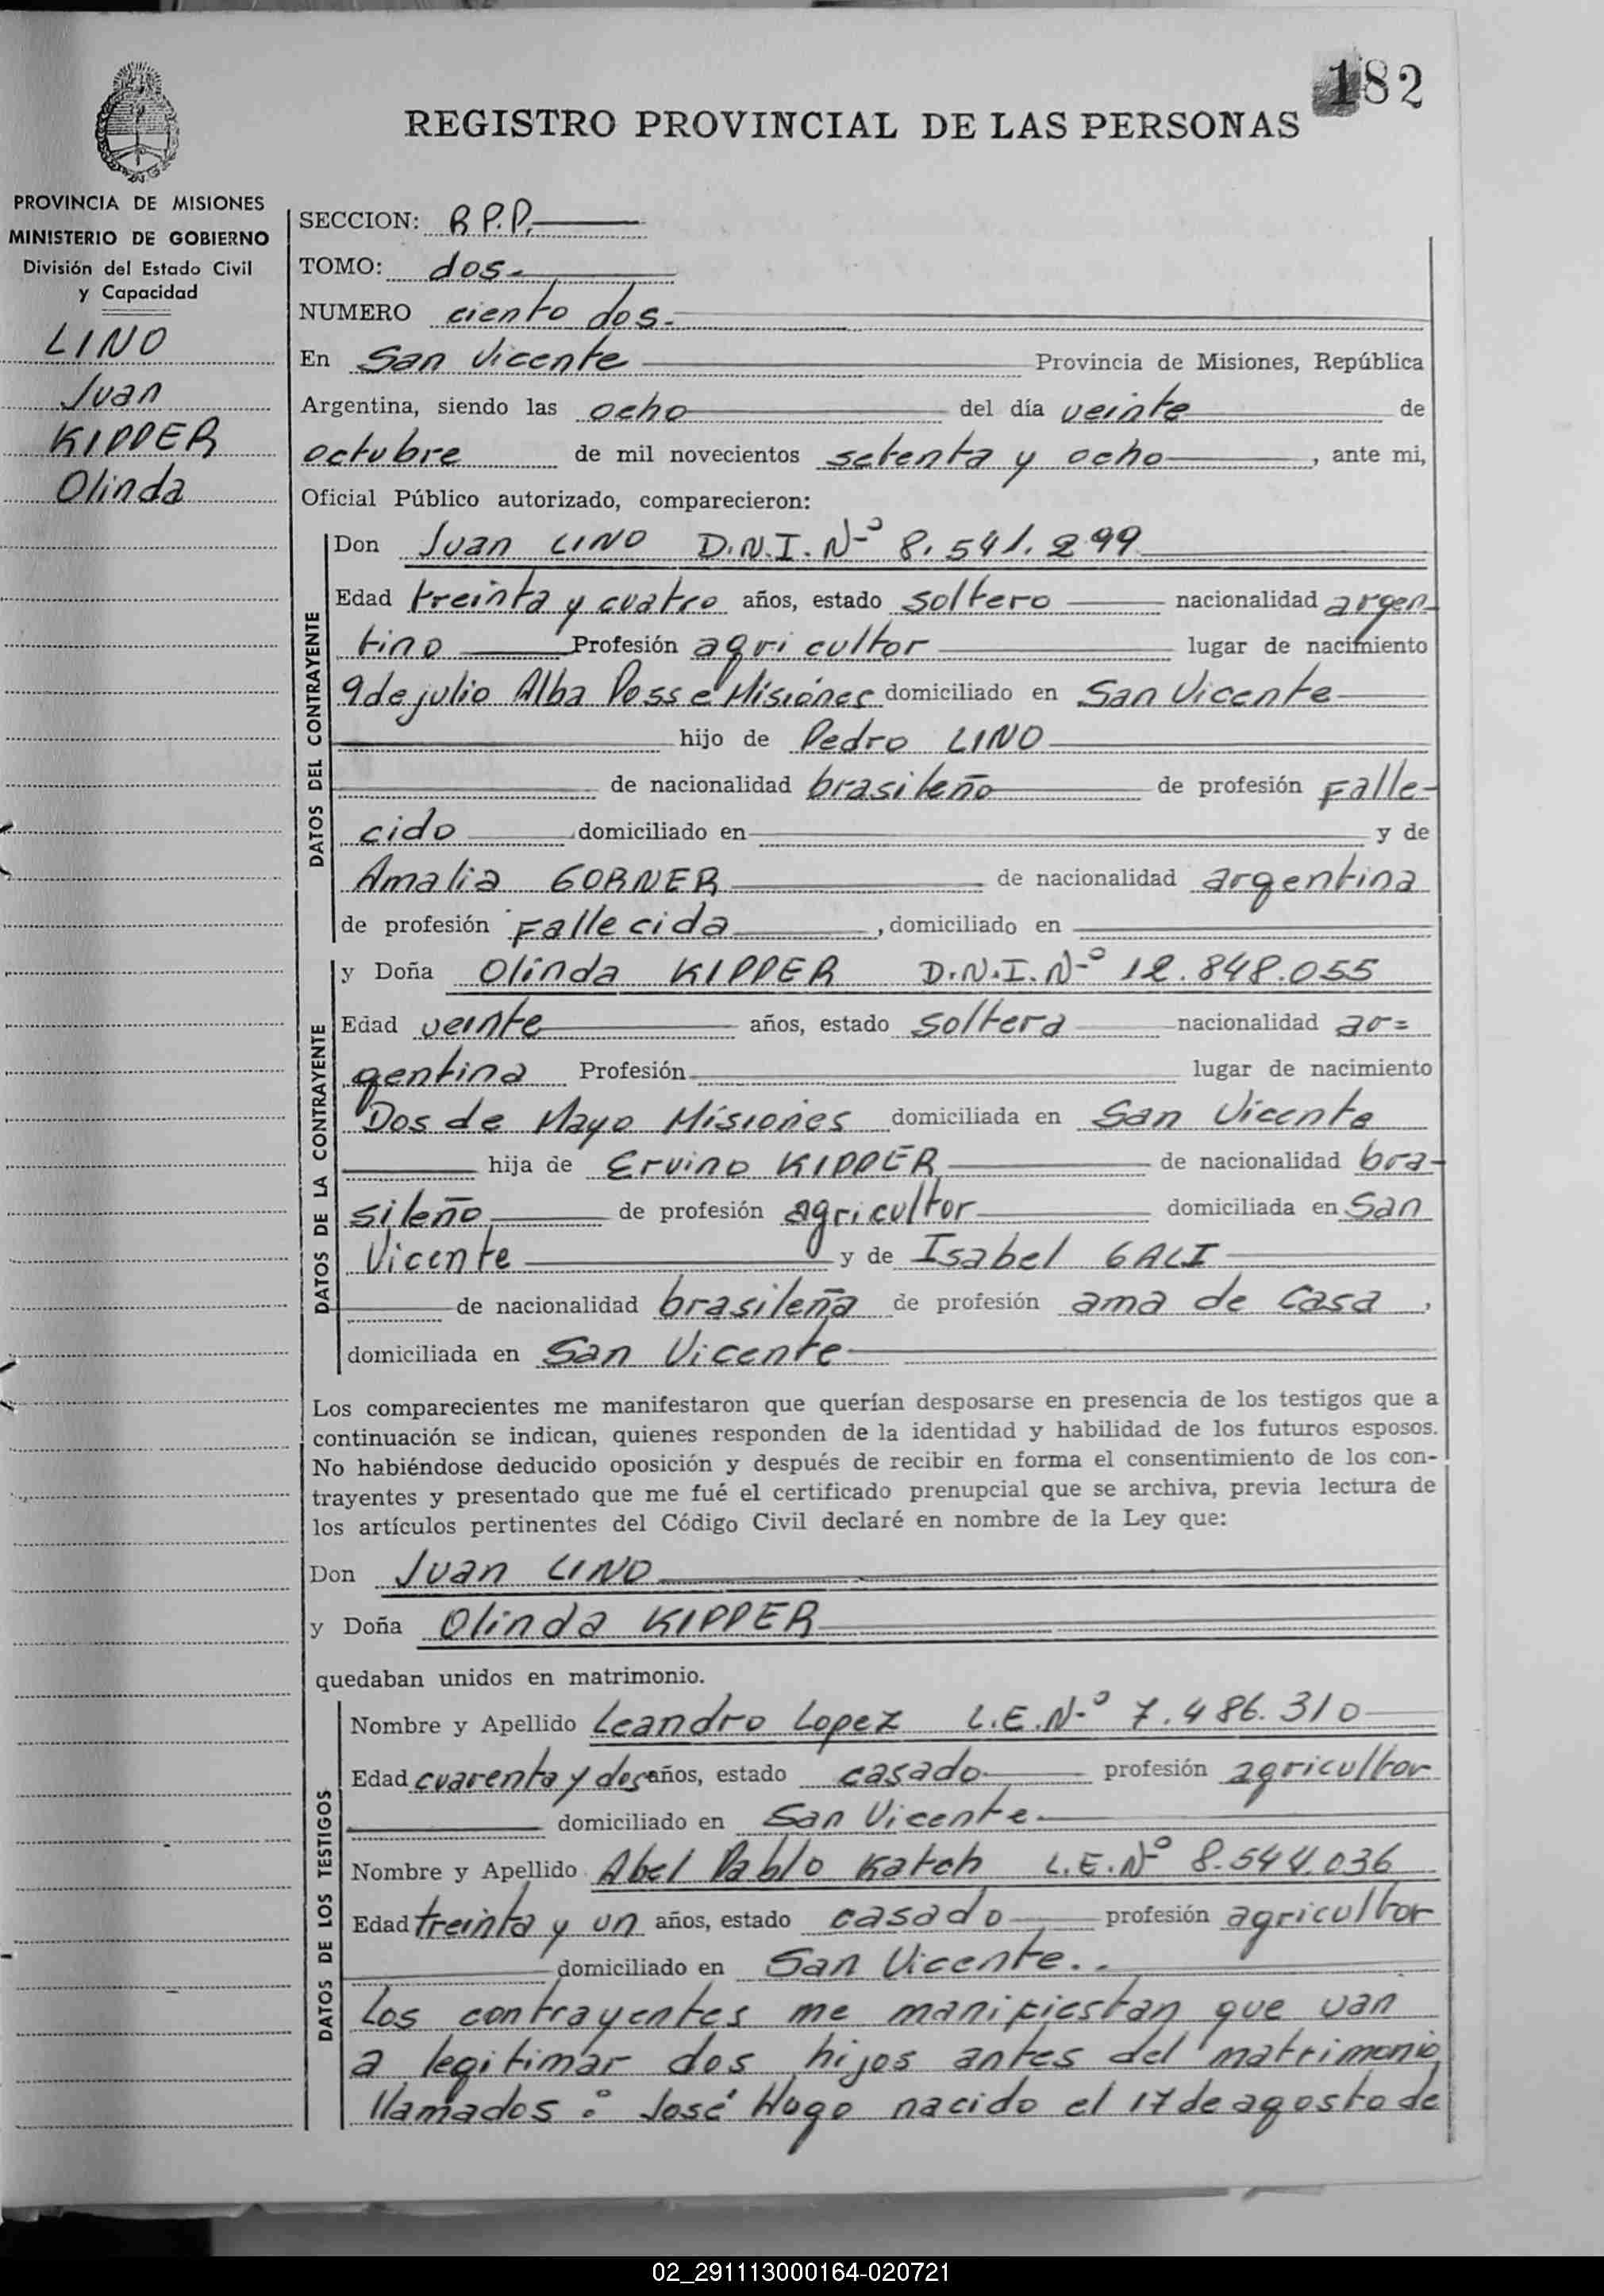 182
REGISTRO PROVINCIAL DE LAS PERSONAS
PROVINCIA DE MISIONES
MINISTERIO DE GOBIERNO
División del Estado Civil
y Capacidad
LINO
Juan
KIPPER
Olinda
SECCION: R P.P.
TOMO: dos.
NUMERO ciento dos.
En San Vicente Provincia de Misiones, República
Argentina, siendo las ocho del día veinte de
octubre de mil novecientos setenta y ocho, ante mi,
Oficial Público autorizado, comparecieron:
DATOS DEL CONTRAYENTE
Don Juan LINO D.N.I. Nº 8.541.299
Edad treinta y cuatro años, estado soltero nacionalidad argen
tino Profesión agricultor lugar de nacimiento
9 de julio Alba Posse Misiones domiciliado en San Vicente
hijo de Pedro LINO
de nacionalidad brasileño de profesión Falle-
cido domiciliado en y de
Amalia GORNER de nacionalidad argentina
de profesión Fallecida, domiciliado en
DATOS DE LA CONTRAYENTE
y Doña Olinda KIPPER D.N.I. Nº 12.848.055
Edad veinte años, estado soltera nacionalidad ar=
gentina Profesión lugar de nacimiento
Dos de Mayo Misiones domiciliada en San Vicente
hija de Ervino KIPPER de nacionalidad bra-
sileño de profesión agricultor domiciliada en San
Vicente y de Isabel GALI
de nacionalidad brasileña de profesión ama de casa,
domiciliada en San Vicente
Los comparecientes me manifestaron que querían desposarse en presencia de los testigos que a
continuación se indican, quienes responden de la identidad y habilidad de los futuros esposos.
No habiéndose deducido oposición y después de recibir en forma el consentimiento de los con-
trayentes y presentado que me fué el certificado prenupcial que se archiva, previa lectura de
los artículos pertinentes del Código Civil declaré en nombre de la Ley que:
Don Juan LINO
y Doña Olinda KIPPER
quedaban unidos en matrimonio.
DATOS DE LOS TESTIGOS
Nombre y Apellido Leandro Lopez L.E.Nº 7.486.310
Edad cuarenta y dos años, estado casado profesión agricultor
domiciliado en San Vicente
Nombre y Apellido Abel Pablo Katch L.E.Nº 8.544.036
Edad treinta y un años, estado casado profesión agricultor
domiciliado en San Vicente..
Los contrayentes me manifiestan que van
a legitimar dos hijos antes del matrimonio
llamados: José Hugo nacido el 17 de agosto de
02_291113000164-020721